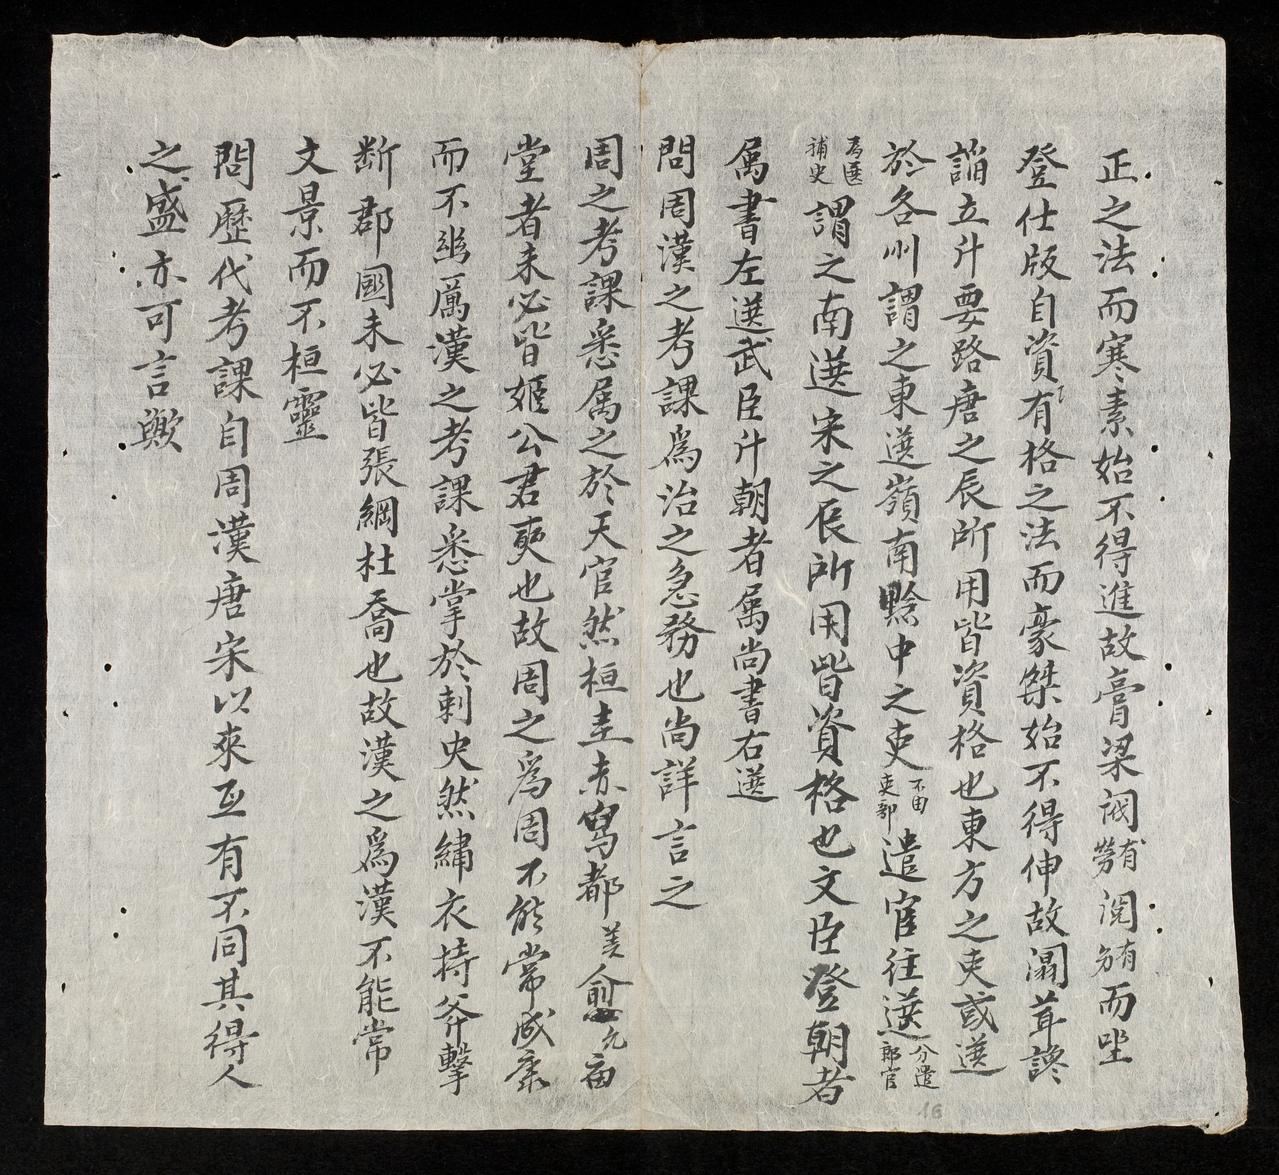 正之法而寒素始不得進故膏梁阀有勞閲有功而坐
登仕版自資有格之法而豪桀始不得伸故溻茸謟
謟立升要路唐之辰所用皆資格也東方之吏或選
於各州謂之東選嶺南黔中之吏不由吏部遣官往選分遣郎官
為選補史謂之南選宋之辰所用皆資格也文臣登朝者
属書左選武臣升朝者属尚書右選
問周漢之考課為治之急務也尚詳言之
周之考課悉属之於天官然桓圭赤舄都美愈允庙
堂者未必皆姬公君奭也故周之為周不能常成康
而不幽厲漢之考課悉掌於刺史然繡衣持斧擊
断郡國未必皆張綱杜喬也故漢之為漢不能常
文景而不桓靈
問歷代考課自周漢唐宋以來互有不同其得人
之盛亦可言歟